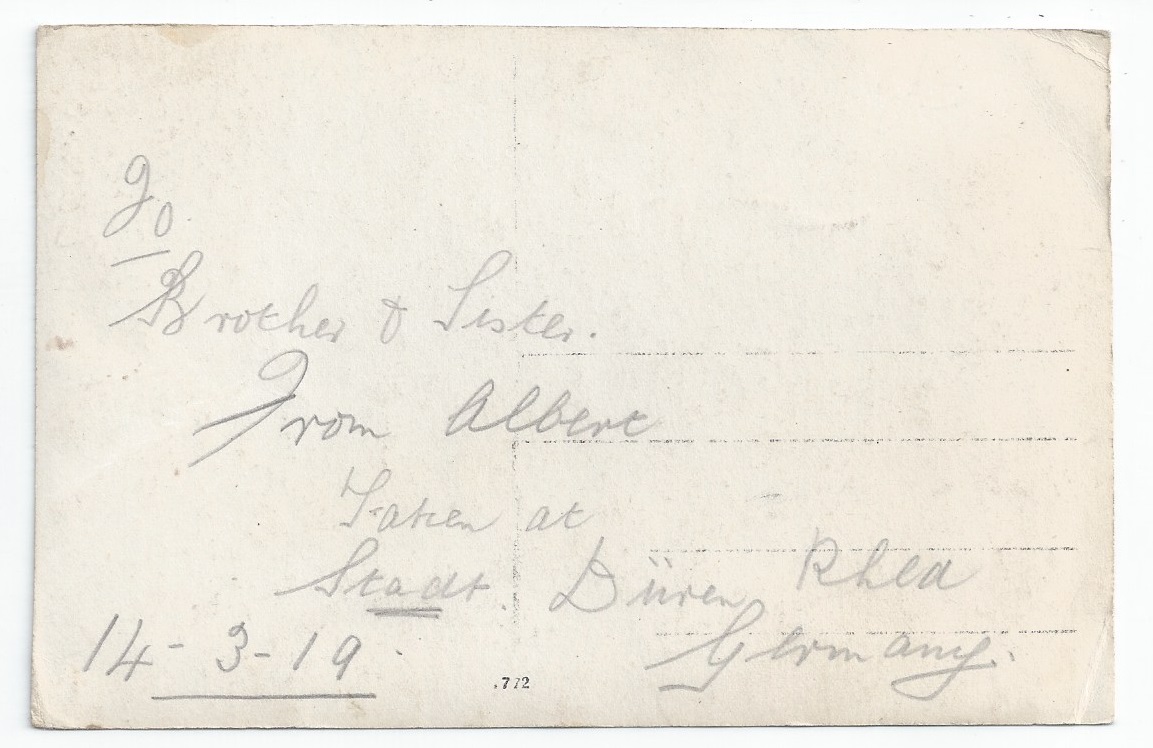 To
Brother & Sister.
From Albert
Taken at
Stadt. Düren Rhld
Germany.
14-3-19.
.772